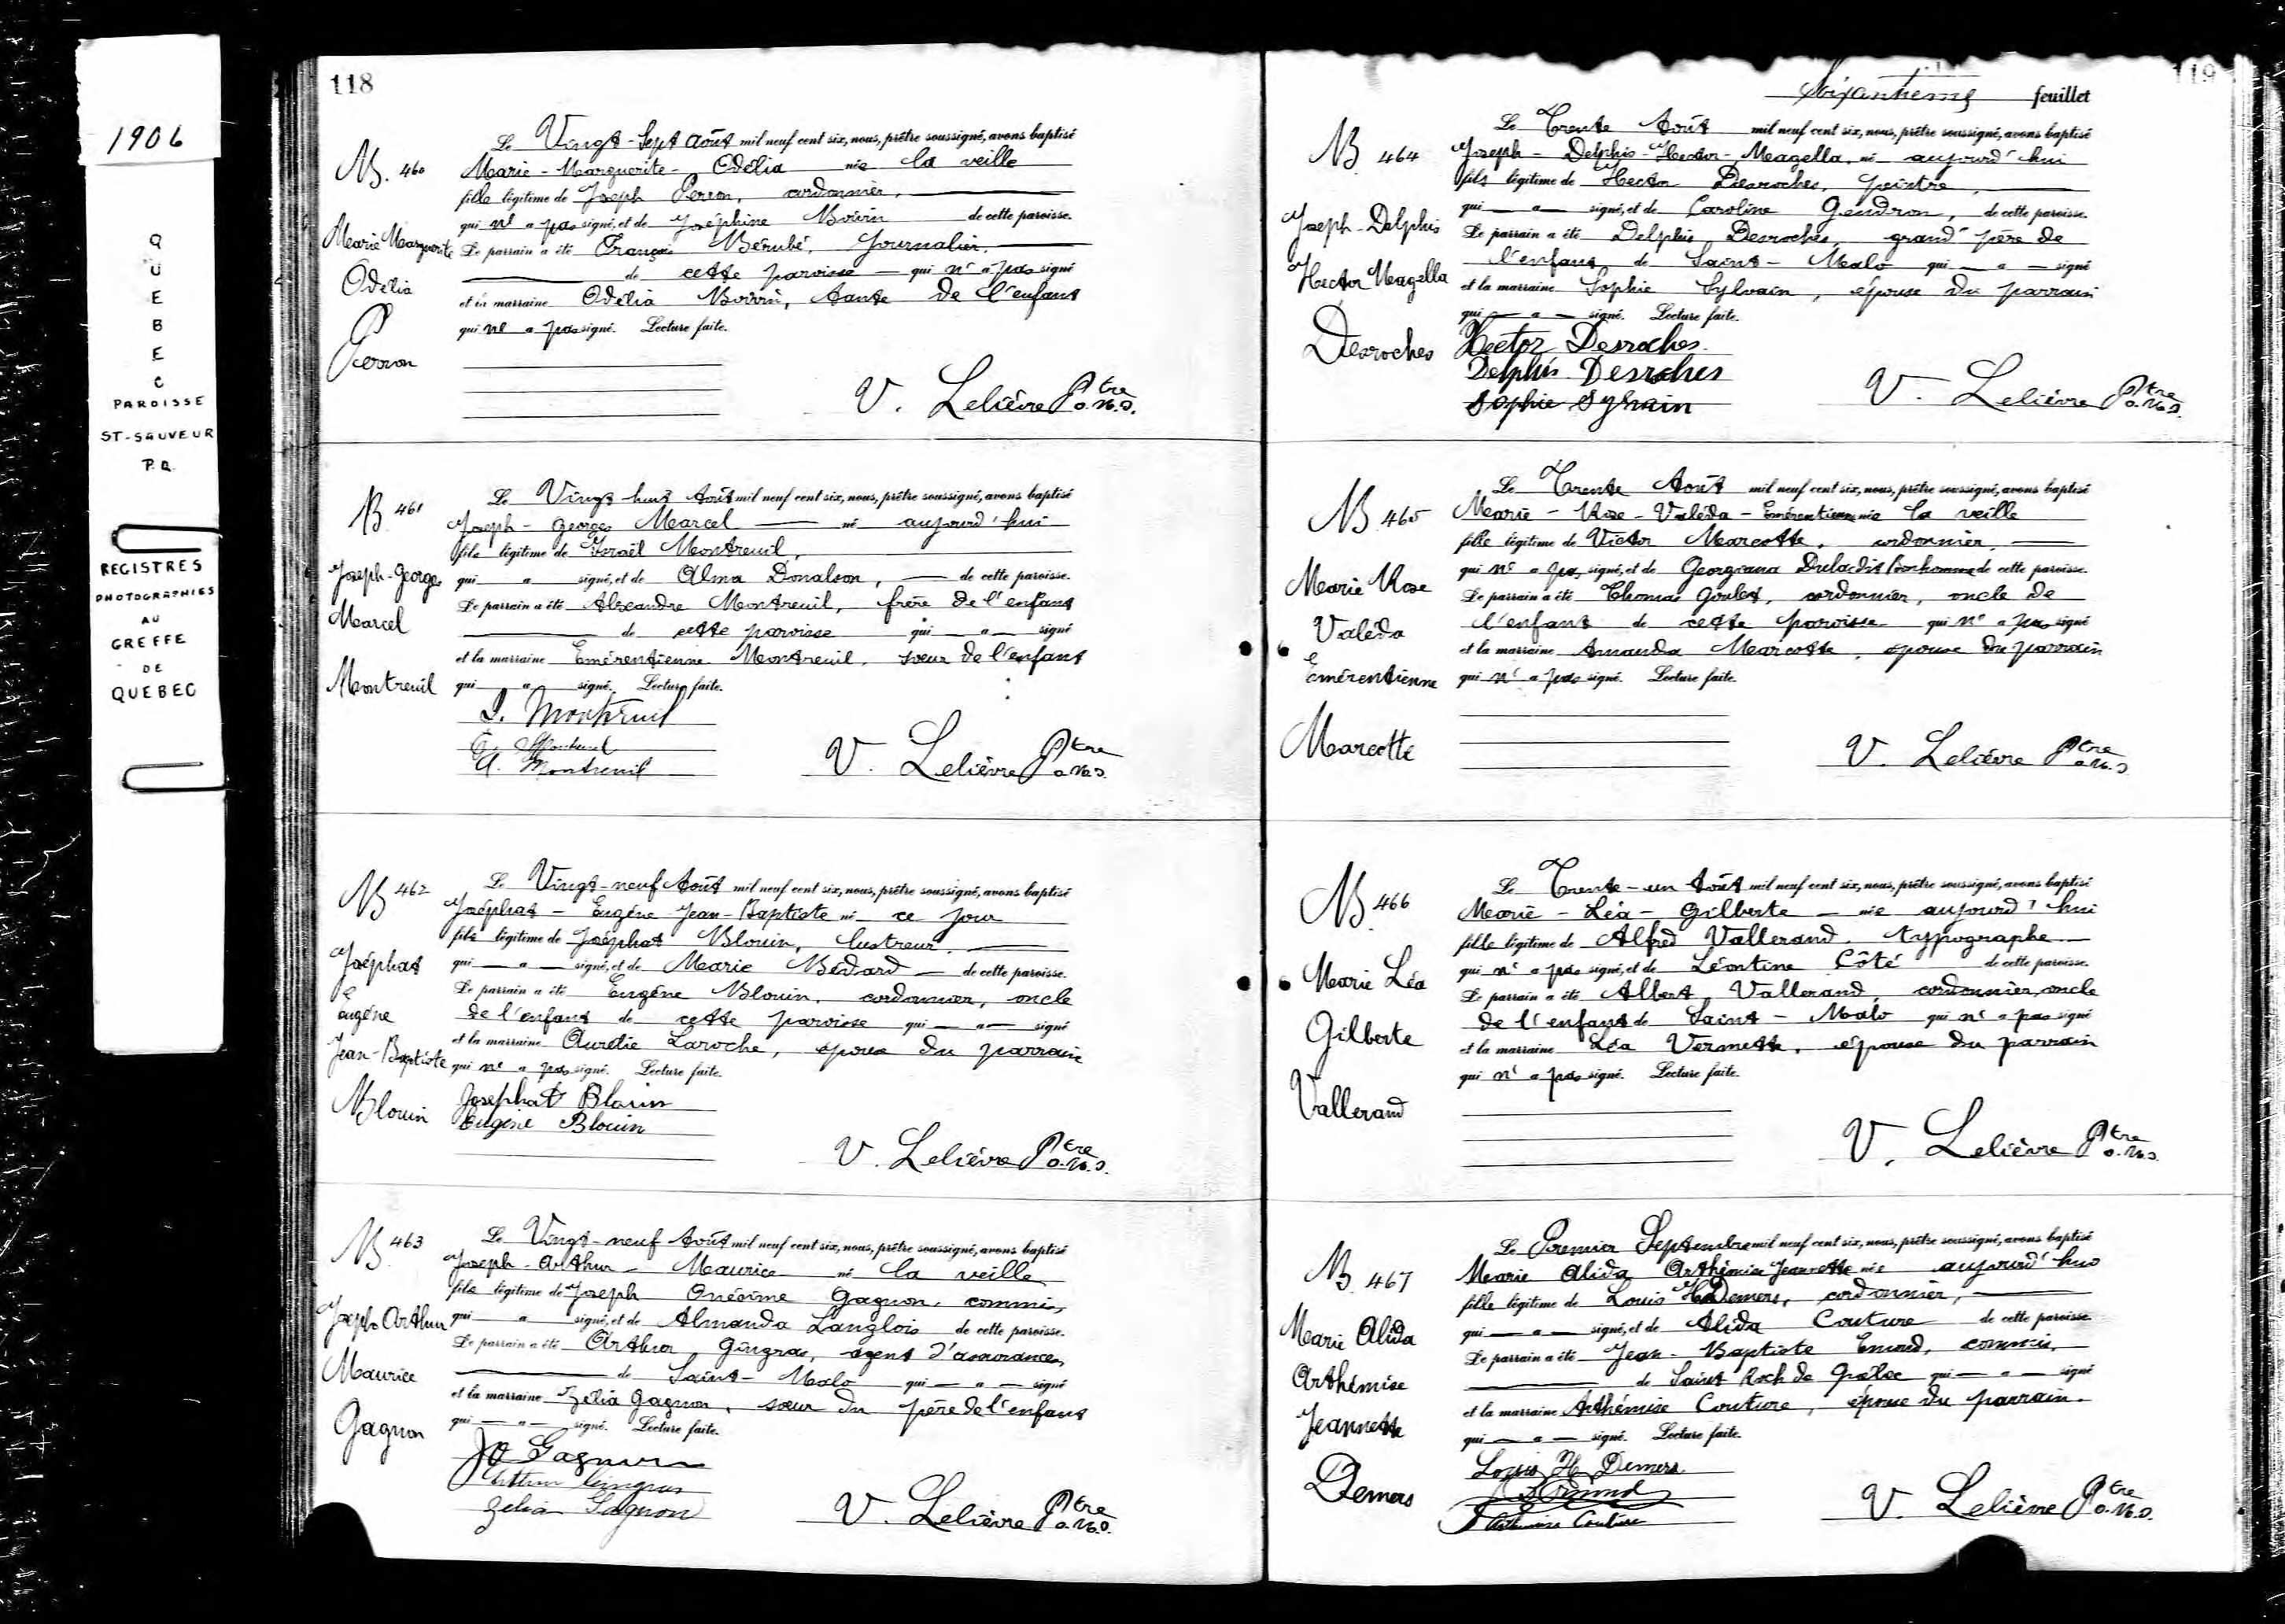 1906
QUEBEC
PAROISSE
ST-SAUVEUR
P.Q.
REGISTRES
PHOTOGRAPHIES
AU
GREFFE
DE
QUEBEC
118
B. 460
Marie Marguerite
Odélia
Perron
Le Vingt-Sept août mil neuf cent six, nous, prêtre soussigné, avons baptisé
Marie-Marguerite-Odélia née la veille
fille légitime de Joseph Perron, cordonnier,
qui n'a pas signé, et de Joséphine Boivin de cette paroisse.
Le parrain a été François Bérubé, journalier,
de cette paroisse qui n'a pas signé
et la marraine Odélia Boivin, tante de l'enfant
qui n'a pas signé. Lecture faite.
V. Lelièvre Ptre
o.m.i.
B. 461
Joseph-Georges
Marcel
Montreuil
Le Vingt huit Août mil neuf cent six, nous, prêtre soussigné, avons baptisé
Joseph-Georges Marcel né aujourd'hui
fils légitime de Israël Montreuil,
qui a signé, et de Alma Donalson, de cette paroisse.
Le parrain a été Alexandre Montreuil, frère de l'enfant
de cette paroisse qui a signé
et la marraine Emérentienne Montreuil, sœur de l'enfant
qui a signé. Lecture faite.
I. Montreuil
E. Montreuil
A. Montreuil
V. Lelièvre Ptre
o.m.i.
B 462
Joséphat
Eugène
Jean-Baptiste
Blouin
Le Vingt-neuf Août mil neuf cent six, nous, prêtre soussigné, avons baptisé
Joséphat-Eugène-Jean-Baptiste né ce jour
fils légitime de Joséphat Blouin, lustreur,
qui a signé, et de Marie Bédard de cette paroisse.
Le parrain a été Eugène Blouin, cordonnier, oncle
de l'enfant de cette paroisse qui a signé
et la marraine Aurélie Laroche, épouse du parrain
qui n'a pas signé. Lecture faite.
Josephat Blouin
Eugène Blouin
V. Lelièvre Ptre
o.m.i.
B. 463
Joseph Arthur
Maurice
Gagnon
Le Vingt-neuf Août mil neuf cent six, nous, prêtre soussigné, avons baptisé
Joseph-Arthur-Maurice né la veille
fils légitime de Joseph Onésime Gagnon, commis,
qui a signé, et de Almanda Langlois de cette paroisse.
Le parrain a été Arthur Gingras, agent d'assurances,
de Saint-Malo qui a signé
et la marraine Zélia Gagnon, sœur du père de l'enfant
qui a signé. Lecture faite.
JO Gagnon
Arthur Gingras
Zelia Gagnon
V. Lelièvre Ptre
o.m.i.
119
Soixantième feuillet
B 464
Joseph-Delphis
Hector Magella
Desroches
Le Trente Août mil neuf cent six, nous, prêtre soussigné, avons baptisé
Joseph-Delphis-Hector-Magella, né aujourd'hui
fils légitime de Hector Desroches, peintre,
qui a signé, et de Caroline Gendron, de cette paroisse.
Le parrain a été Delphis Desroches, grand-père de
l'enfant de Saint-Malo qui a signé
et la marraine Sophie Sylvain, épouse du parrain
qui a signé. Lecture faite.
Hector Desroches.
Delphis Desroches
Sophie Sylvain
V. Lelièvre Ptre
o.m.i.
B 465
Marie Rose
Valéda
Emérentienne
Marcotte
Le Trente Août mil neuf cent six, nous, prêtre soussigné, avons baptisé
Marie-Rose-Valéda-Emérentienne née la veille
fille légitime de Victor Marcotte, cordonnier,
qui n'a pas signé, et de Georgiana de cette paroisse.
Le parrain a été Thomas Goulet, cordonnier, oncle de
l'enfant de cette paroisse qui n'a pas signé
et la marraine Amanda Marcotte, épouse du parrain
qui n'a pas signé. Lecture faite.
V. Lelièvre Ptre
o.m.i.
B 466
Marie Léa
Gilberte
Vallerand
Le Trente-un Août mil neuf cent six, nous, prêtre soussigné, avons baptisé
Marie-Léa-Gilberte née aujourd'hui
fille légitime de Alfred Vallerand, typographe
qui n'a pas signé, et de Léontine Côté de cette paroisse.
Le parrain a été Albert Vallerand, cordonnier, oncle
de l'enfant de Saint-Malo qui n'a pas signé
et la marraine Léa Vermette, épouse du parrain
qui n'a pas signé. Lecture faite.
V. Lelièvre Ptre
o.m.i.
B. 467
Marie Alida
Arthémise
Jeannette
Demers
Le Premier Septembre mil neuf cent six, nous, prêtre soussigné, avons baptisé
Marie Alida Arthémise Jeannette née aujourd'hui
fille légitime de Louis H. Demers, cordonnier,
qui a signé, et de Alida Couture de cette paroisse
Le parrain a été Jean-Baptiste Emond, commis,
de Saint Roch de Québec qui a signé
et la marraine Arthémise Couture, épouse du parrain.
qui a signé. Lecture faite.
Louis H. Demers.
Arthemise Couture
V. Lelièvre Ptre
o.m.i.